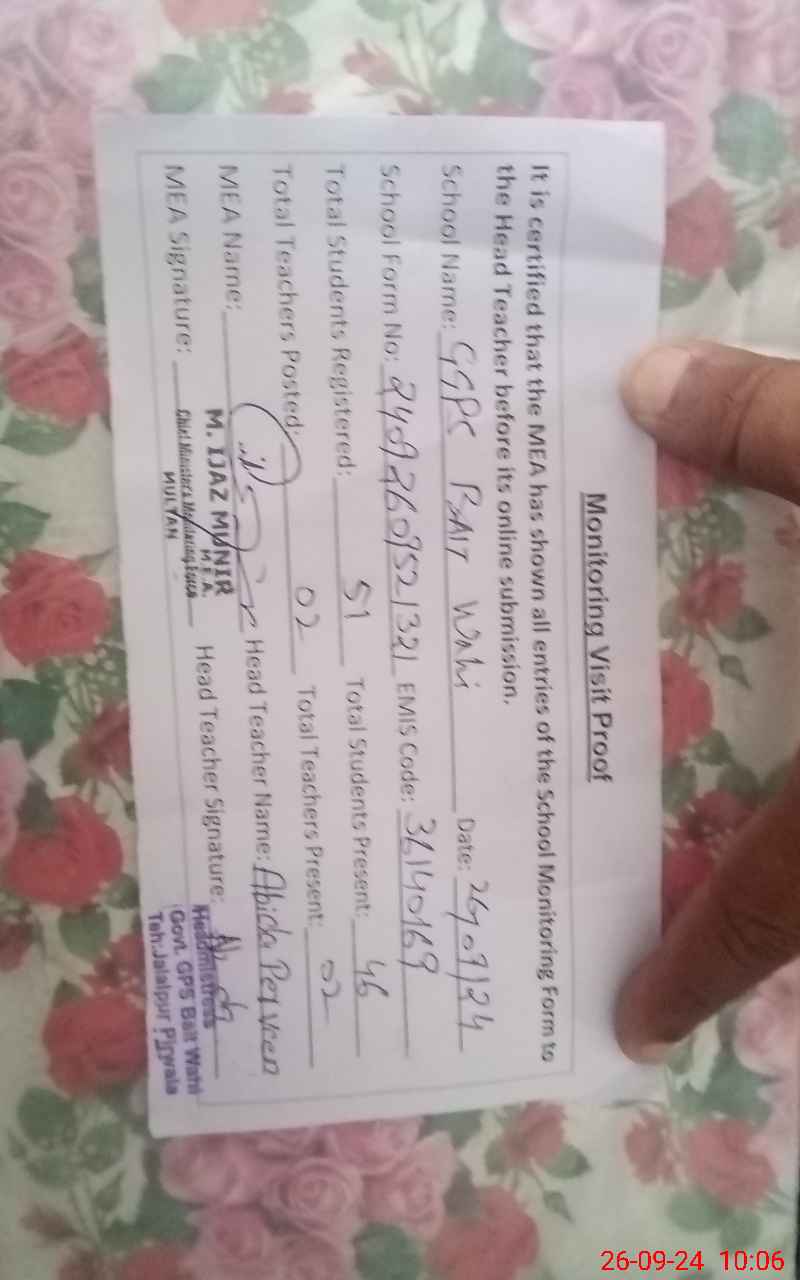 Monitoring Visit Proof
It is certified that the MEA has shown all entries of the School Monitoring Form to
the Head Teacher before its online submission.
School Name: GGPS BAIT Wahi Date: 26/09/24
School Form No: 24092609521321 EMIS Code: 36140169
Total Students Registered: 51 Total Students Present: 46
Total Teachers Posted: 02 Total Teachers Present: 02
MEA Name: Head Teacher Name: Abida Perveen
M. IJAZ MUNIR
M.E.A.
MEA Signature: Chief Minister's Monitoring Force Head Teacher Signature:
MULTAN
Headmistress
Govt. GPS Bait Wahi
Teh: Jalalpur Pirwala
26-09-24 10:06